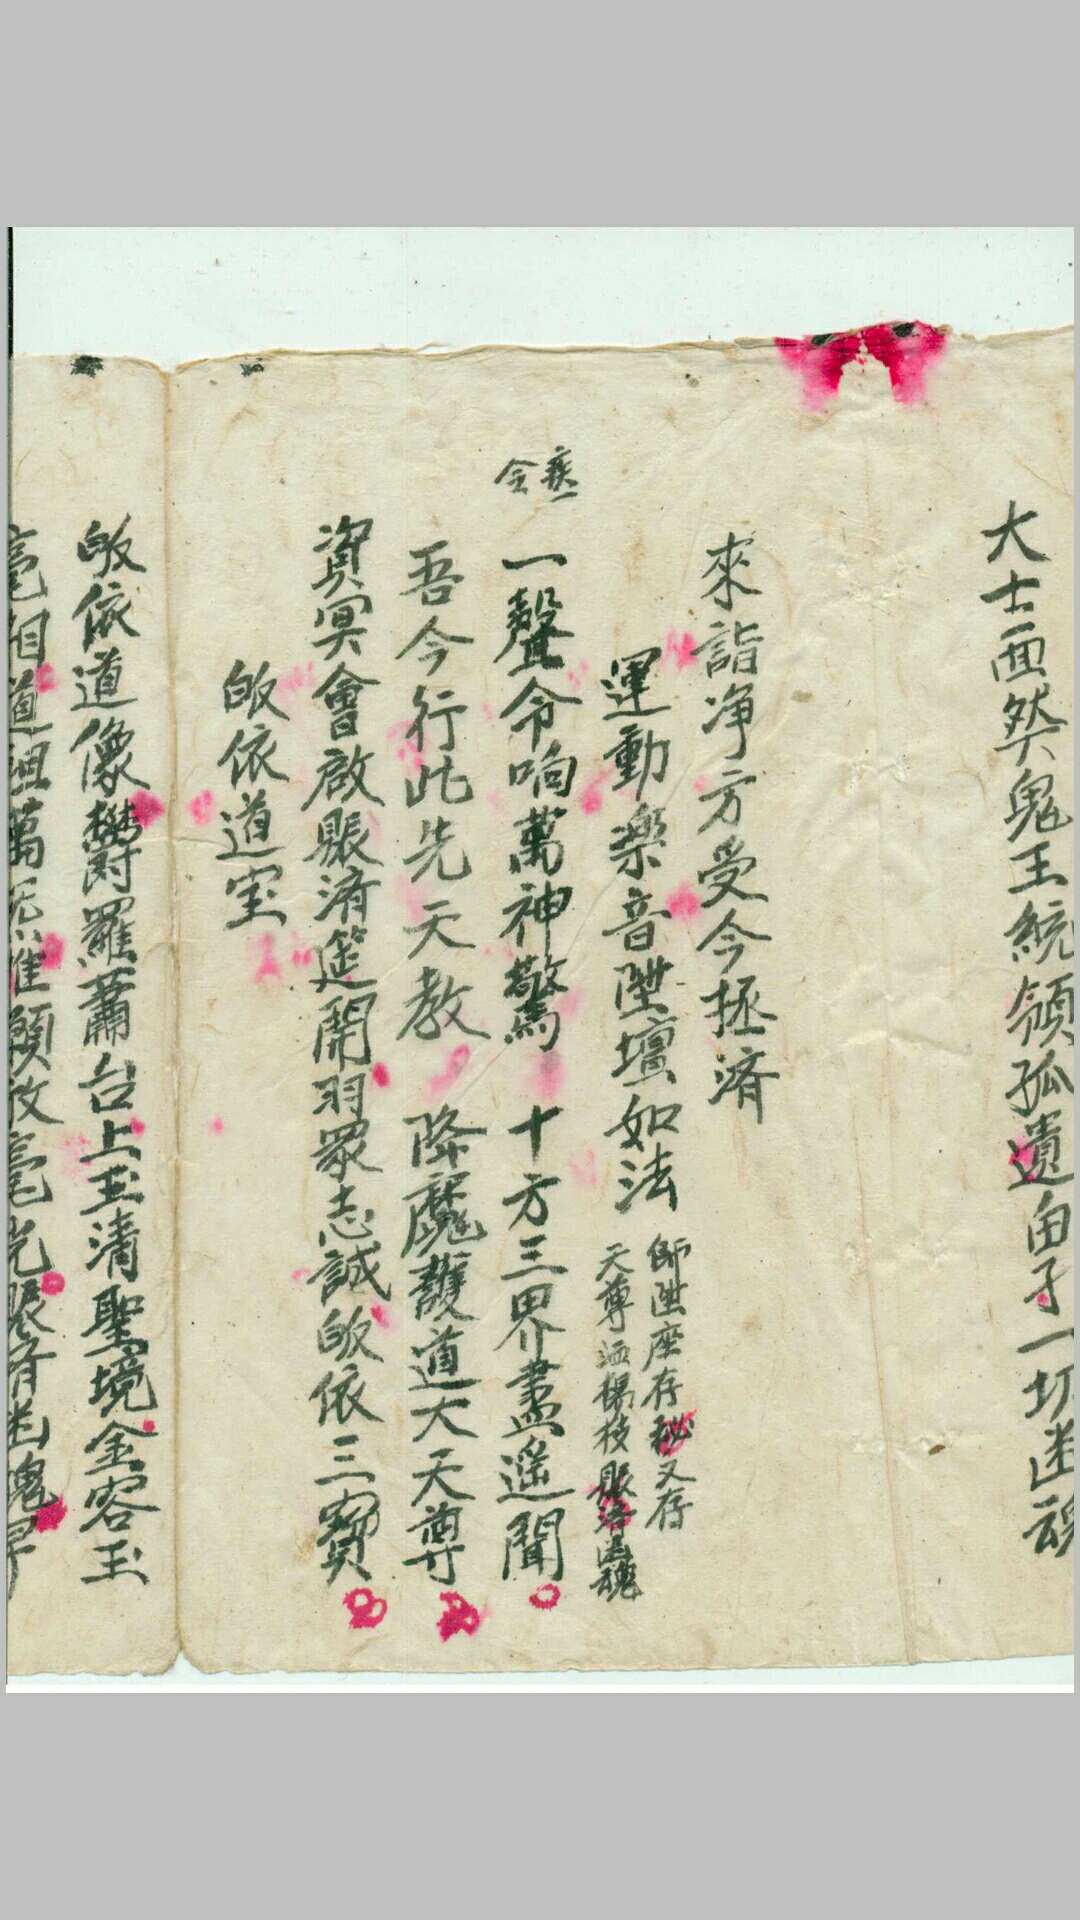 大士面然鬼王統領孤遺由子一切迷魂
來詣净方受今拯济
運動楽音陞壇如法
師陞座存秘又存
天尊洒楊枝賑济孤魂
令
一聲令响萬神驚 十方三界盡遥聞
吾今行此先天教 降魔護道大天尊
資冥會啟賬済筵開羽眾志誠皈依三寶
皈依道宝
皈依道像欝羅蕭台上玉清聖境金容玉
毫相道祖萬天帝願放毫光賑済迷魂昇